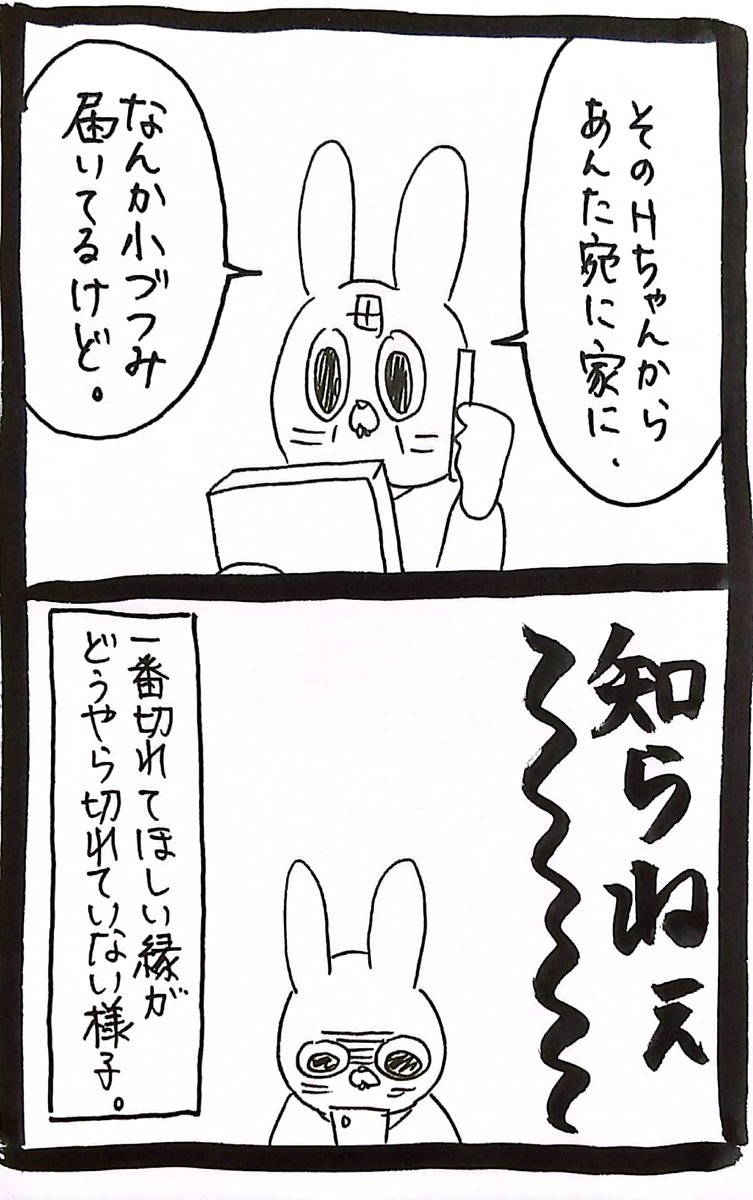 そのHちゃんから
あんた宛に家に、
なんか小づつみ
届いてるけど。
田
知らねえ
〜
一番切れてほしい縁が
どうやら切れていない様子。